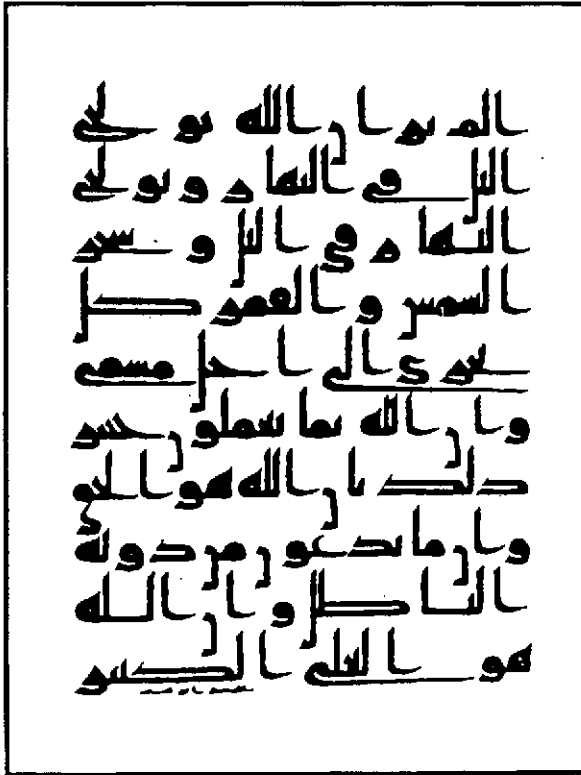 الم تر ان الله يولج
اليل في النهار ويولج
النهار في اليل وسخر
الشمس والقمر كل
يجري الى اجل مسمى
وان الله بما تعملون خبير
ذلك بان الله هو الحق
وان ما يدعون من دونه
الباطل وان الله
هو العلي الكبير